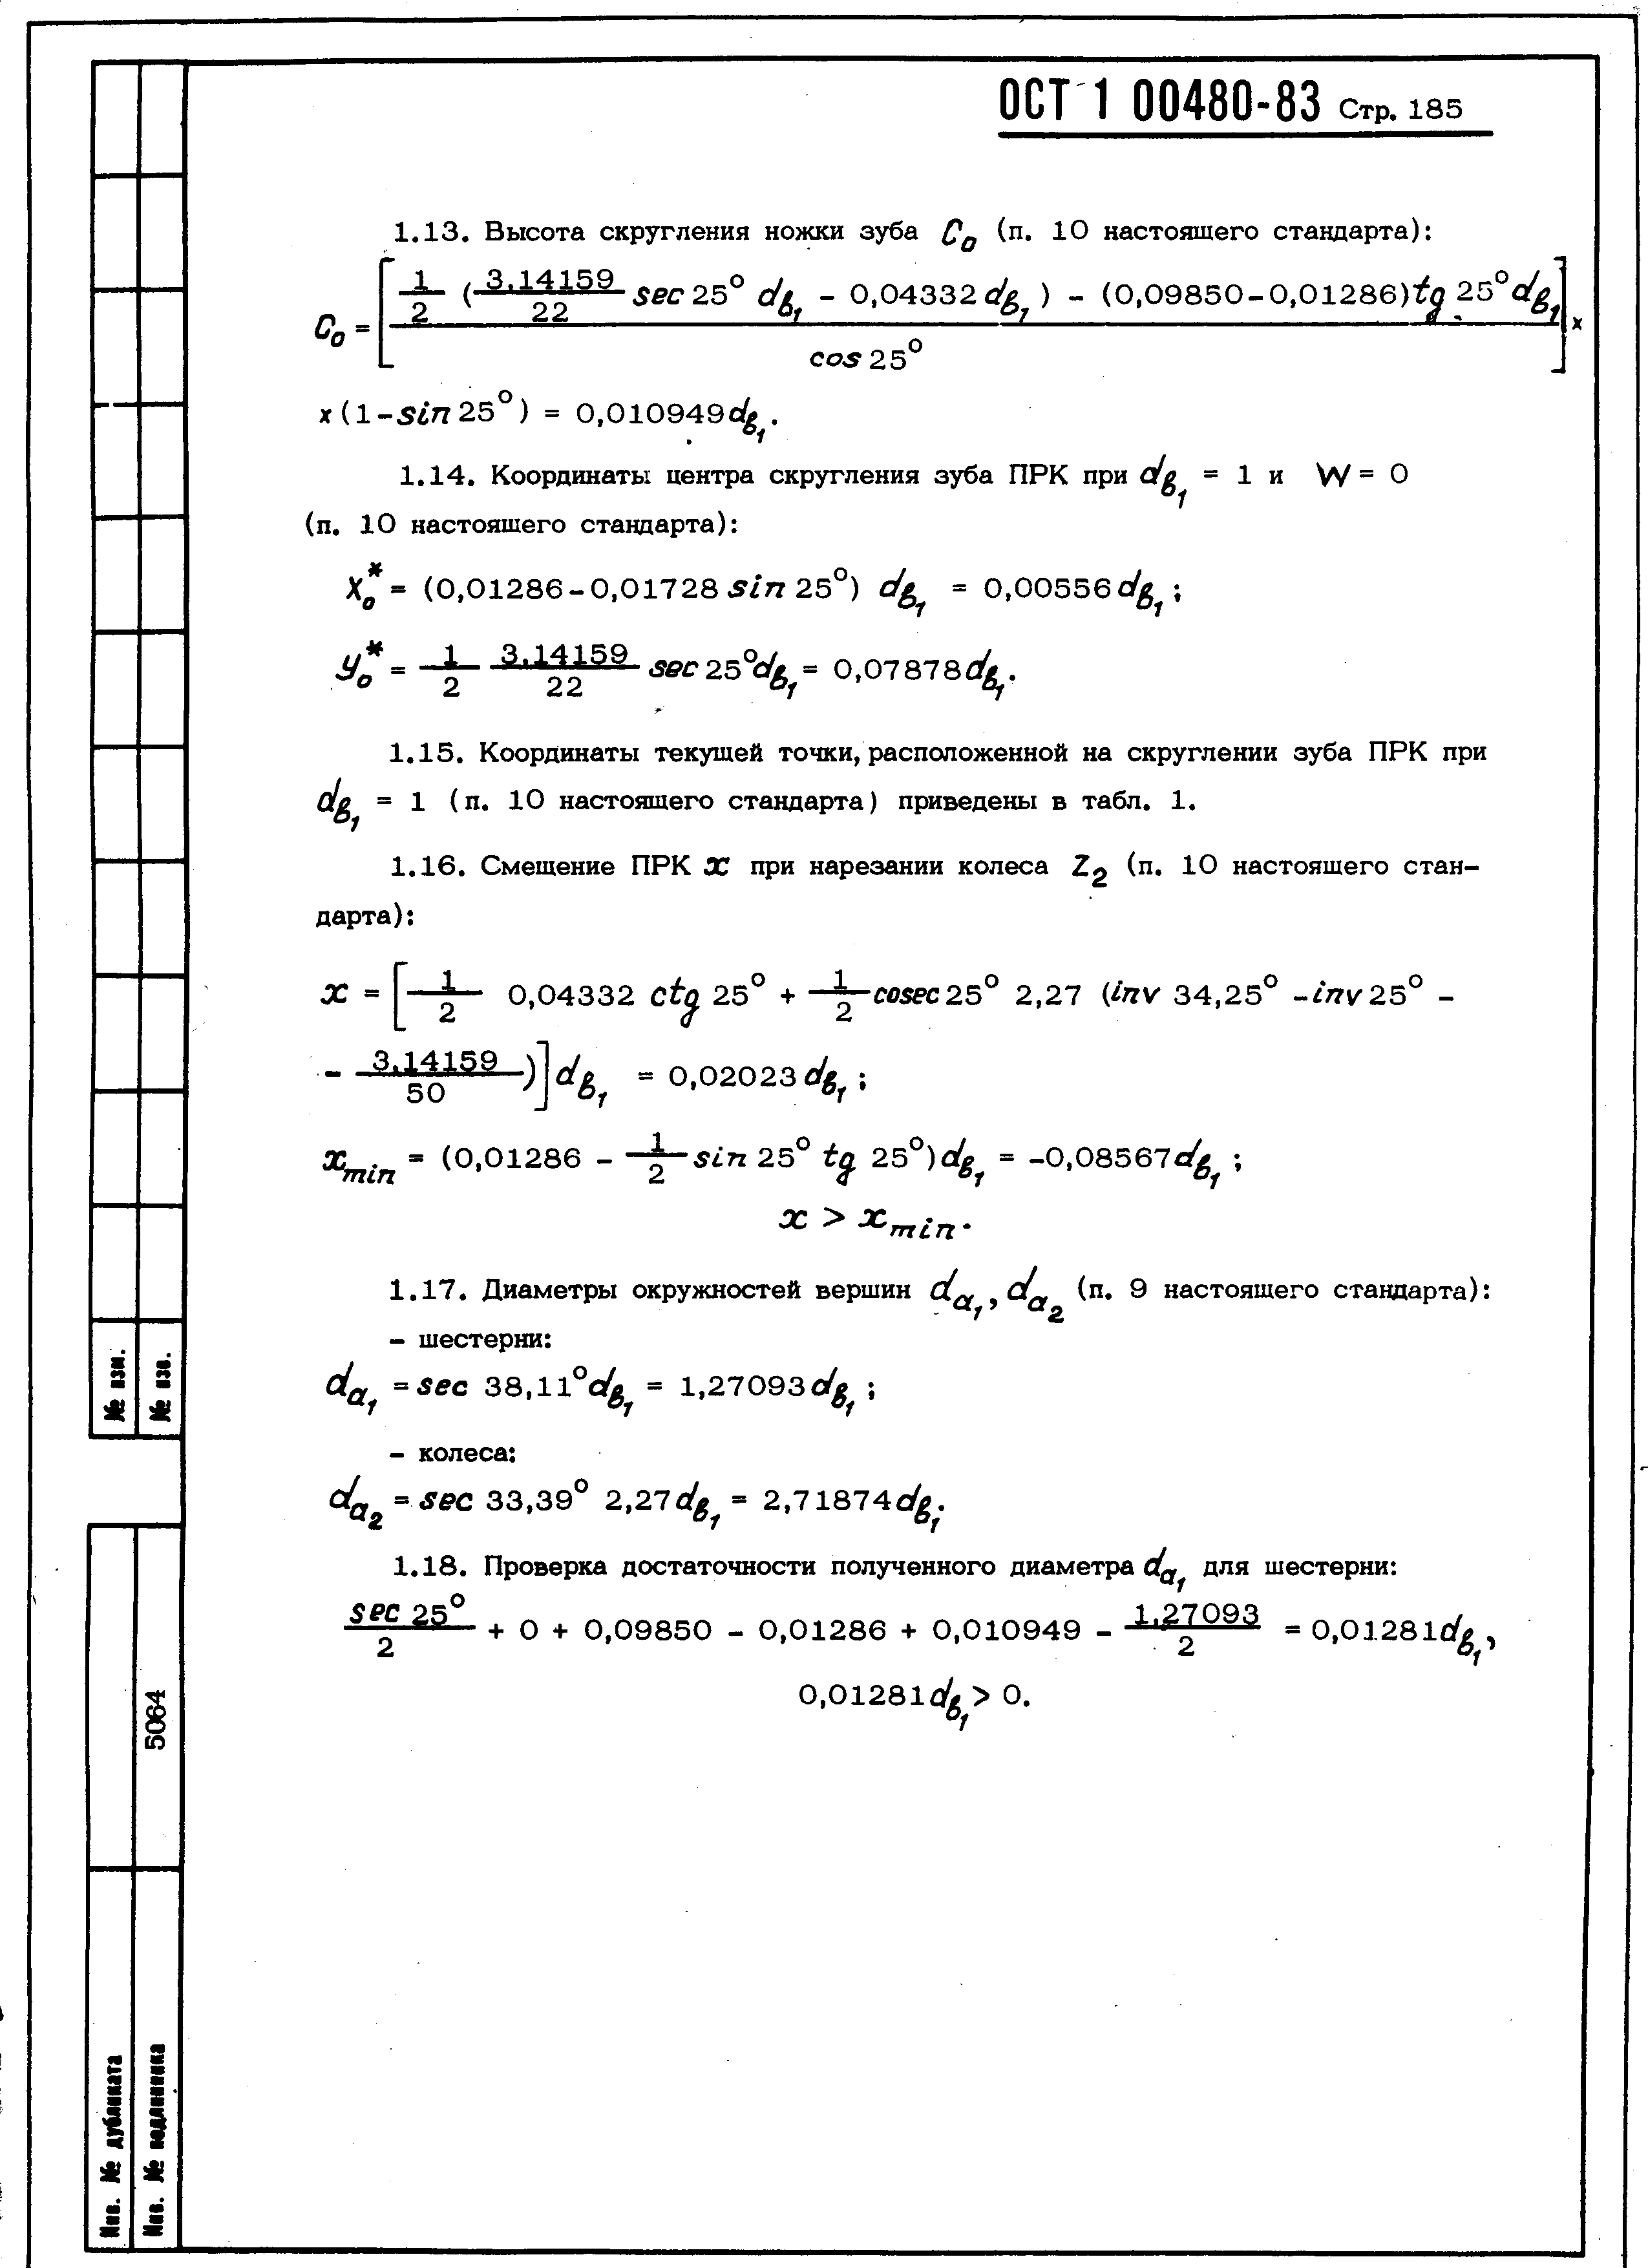 ОСТ 1 00480-83 Стр. 185
1.13. Высота скругления ножки зуба C₀ (п. 10 настоящего стандарта):
C₀ = [ (1/2 (3,14159/22 sec 25° d_в₁ - 0,04332 d_в₁) - (0,09850-0,01286) tg 25° d_в₁) / cos 25° ] ×
× (1-sin 25°) = 0,010949 d_в₁.
1.14. Координаты центра скругления зуба ПРК при d_в₁ = 1 и W = 0
(п. 10 настоящего стандарта):
X₀* = (0,01286-0,01728 sin 25°) d_в₁ = 0,00556 d_в₁;
y₀* = 1/2 3,14159/22 sec 25° d_в₁ = 0,07878 d_в₁.
1.15. Координаты текущей точки, расположенной на скруглении зуба ПРК при
d_в₁ = 1 (п. 10 настоящего стандарта) приведены в табл. 1.
1.16. Смещение ПРК x при нарезании колеса Z₂ (п. 10 настоящего стан-
дарта):
x = [ 1/2 0,04332 ctg 25° + 1/2 cosec 25° 2,27 (inv 34,25° - inv 25° -
- 3,14159/50 )] d_в₁ = 0,02023 d_в₁;
x_min = (0,01286 - 1/2 sin 25° tg 25°) d_в₁ = -0,08567 d_в₁;
x > x_min.
1.17. Диаметры окружностей вершин d_a₁, d_a₂ (п. 9 настоящего стандарта):
- шестерни:
d_a₁ = sec 38,11° d_в₁ = 1,27093 d_в₁;
- колеса:
d_a₂ = sec 33,39° 2,27 d_в₁ = 2,71874 d_в₁.
1.18. Проверка достаточности полученного диаметра d_a₁ для шестерни:
sec 25°/2 + 0 + 0,09850 - 0,01286 + 0,010949 - 1,27093/2 = 0,01281 d_в₁,
0,01281 d_в₁ > 0.
№ изм.
№ изв.
5064
Инв. № дубликата
Инв. № подлинника